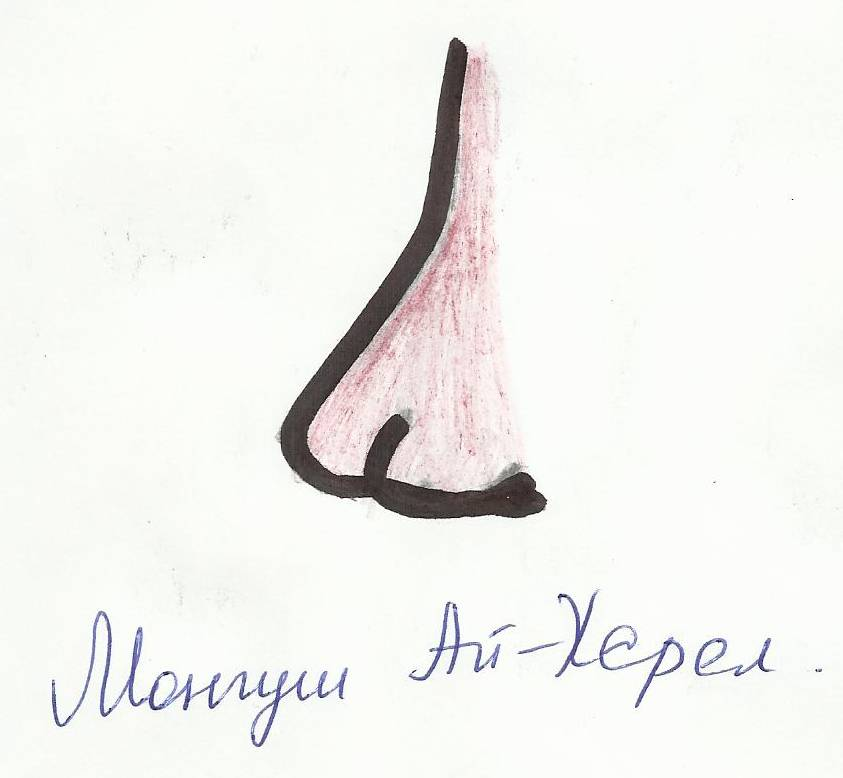 Монгуш Ай-Херел.